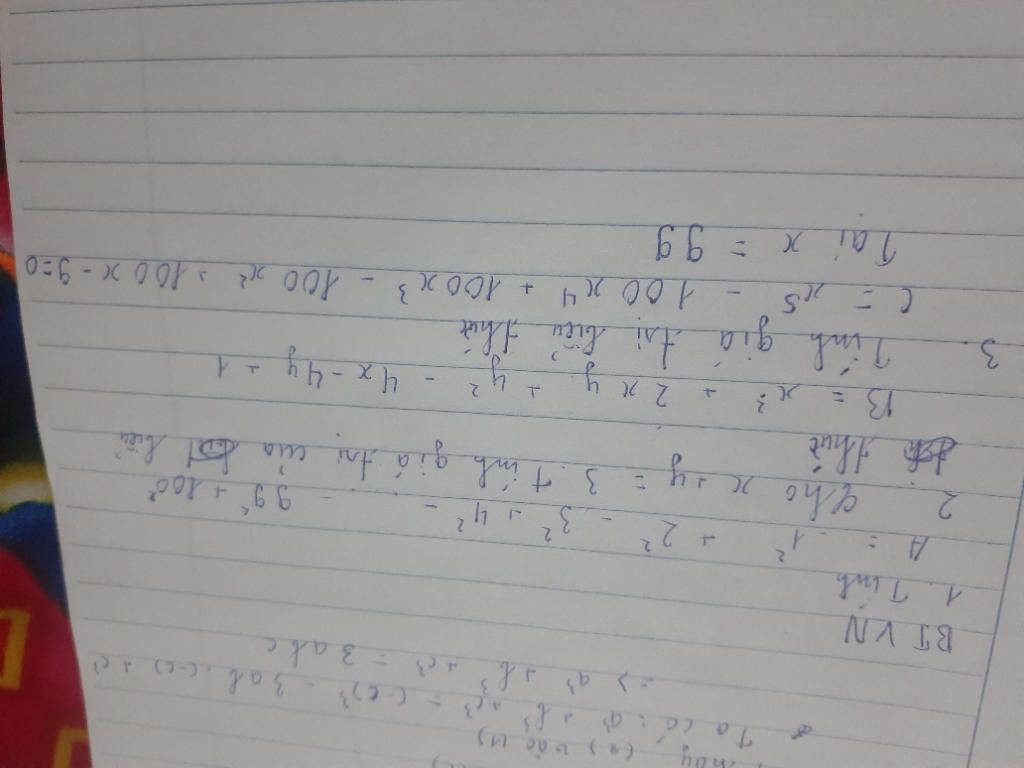 may (2) vào (1)
Ta có: a³ + b³ + c³ = (-c)³ - 3ab.(-c) + c³
=> a³ + b³ + c³ = 3abc
BTVN
1. Tính
A = -1² + 2² - 3² + 4² - ... - 99² + 100²
2 Cho x + y = 3. Tính giá trị của biểu
thức
B = x² + 2xy + y² - 4x - 4y + 1
3. Tính giá trị biểu thức
C = x⁵ - 100x⁴ + 100x³ - 100x² + 100x - 9 = 0
Tại x = 99